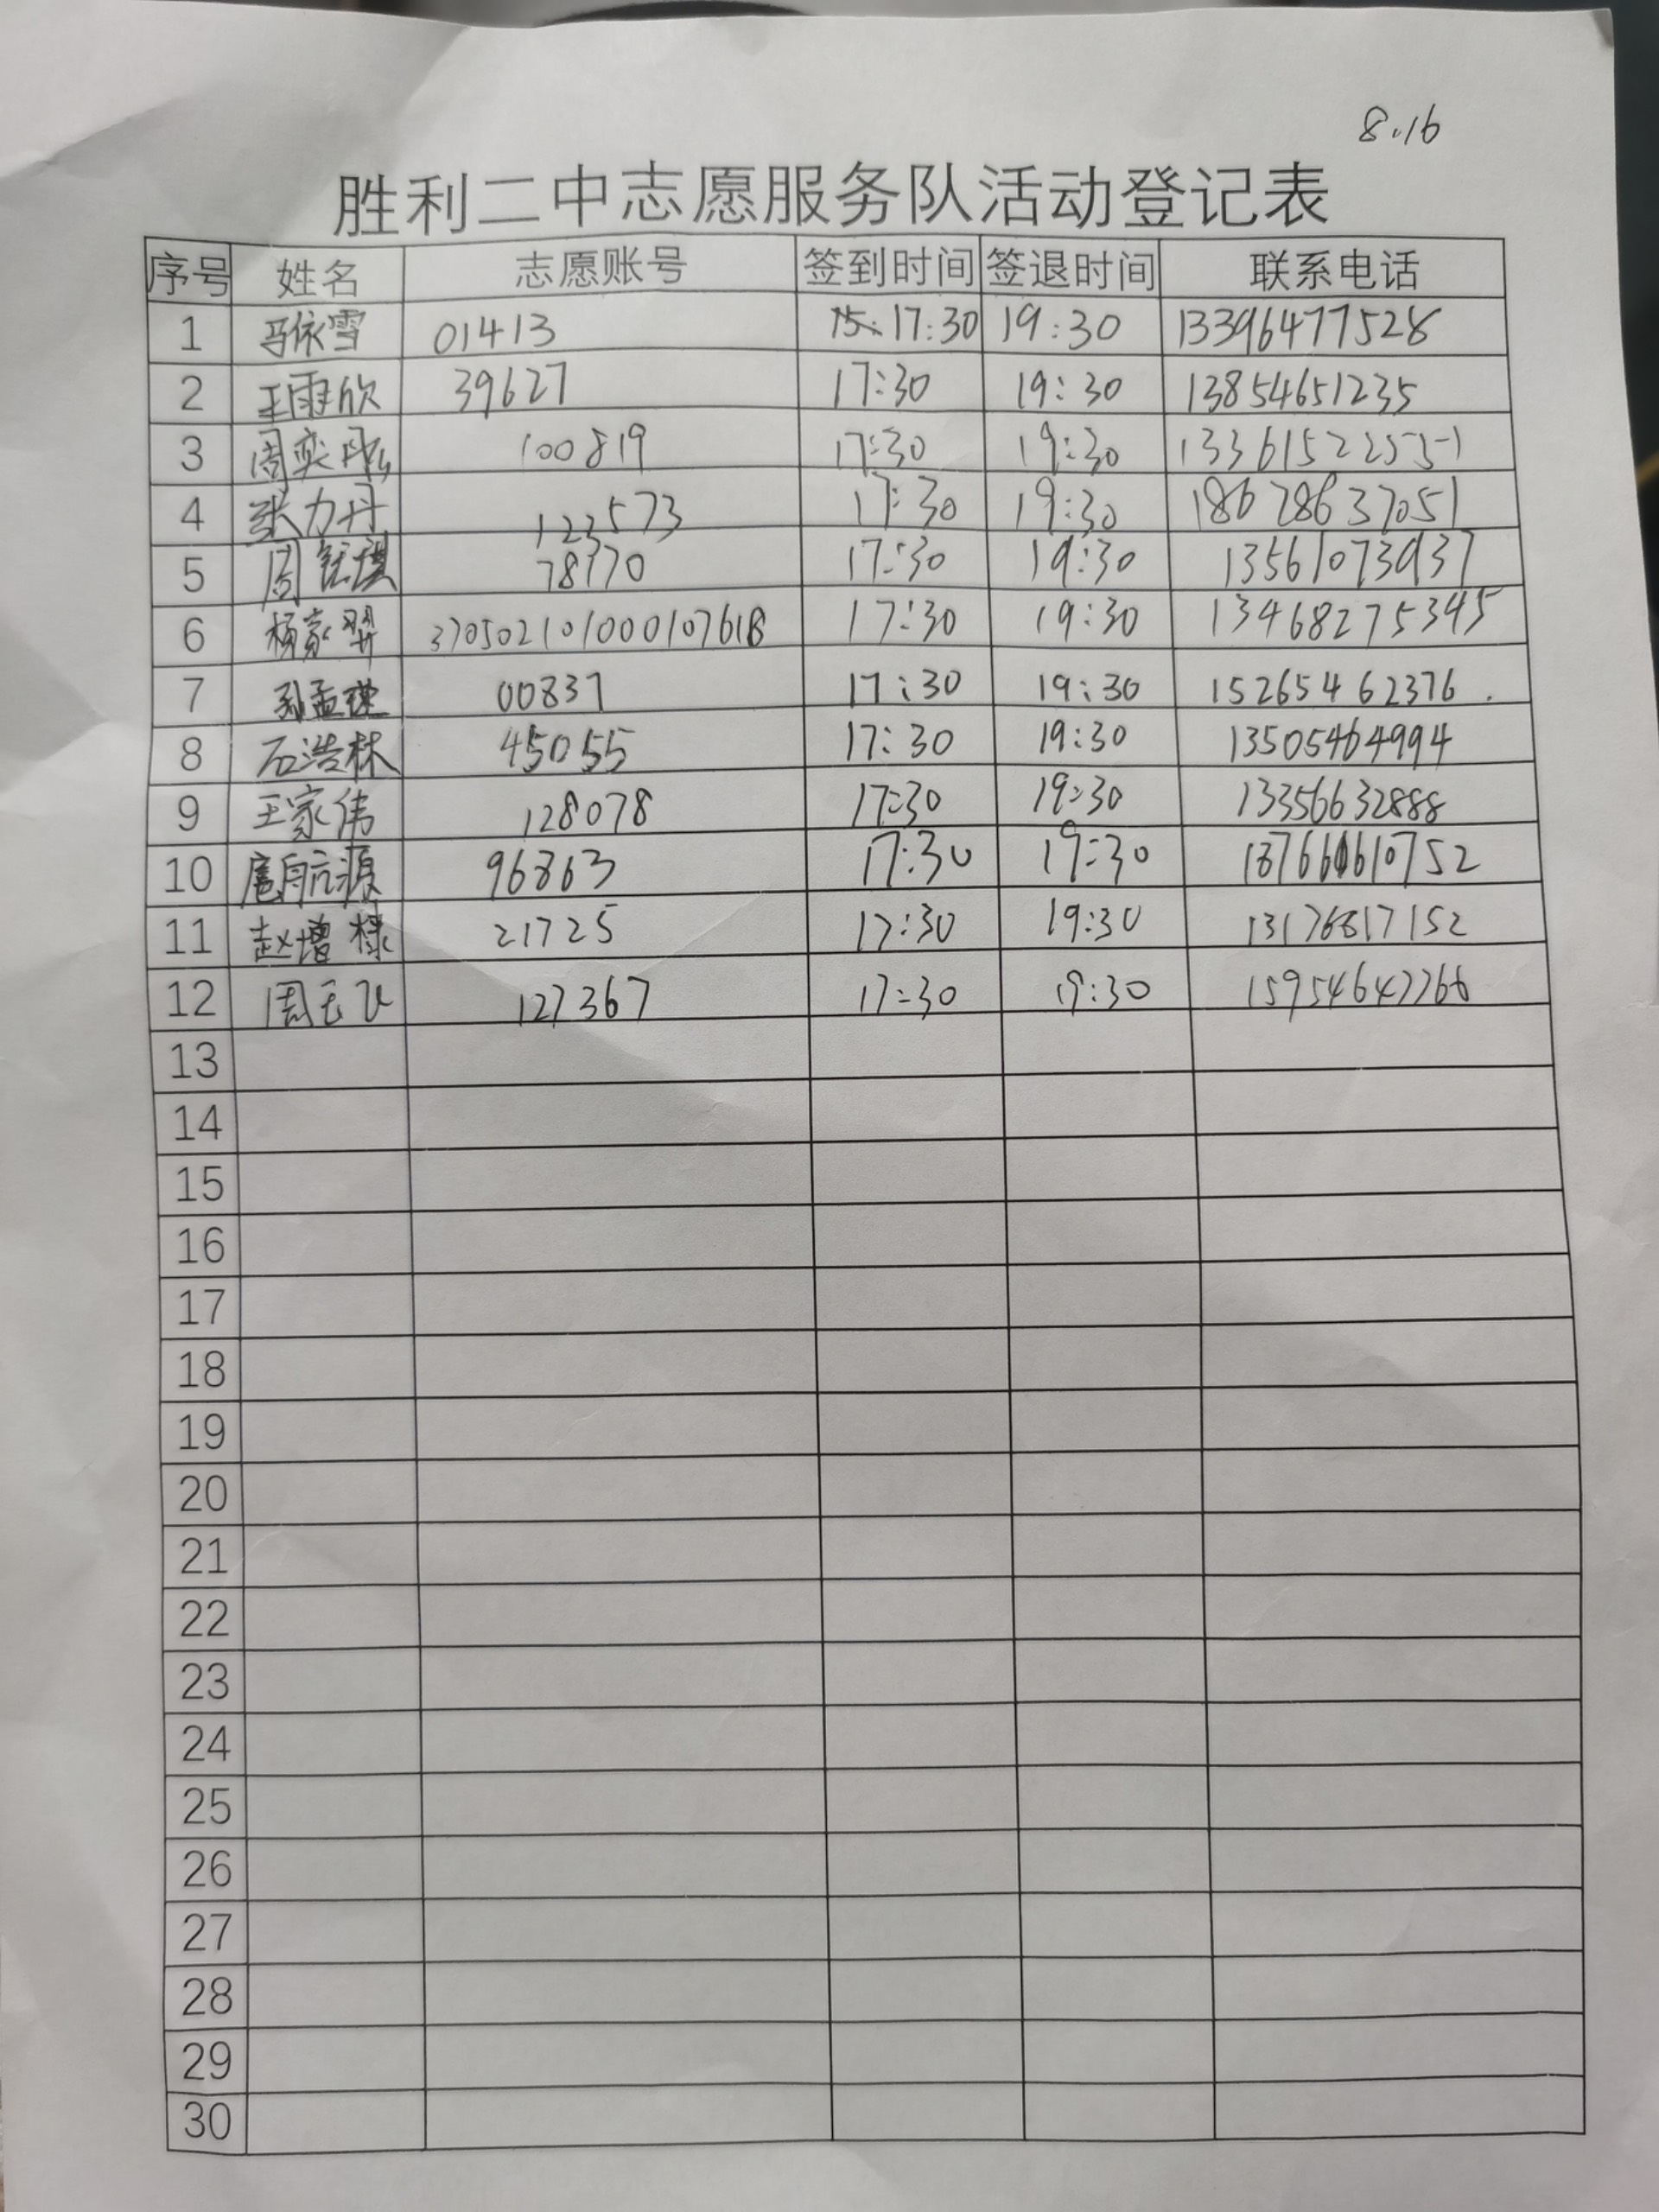 8.16
胜利二中志愿服务队活动登记表
序号 姓名 志愿账号 签到时间 签退时间 联系电话
1 马依雪 01413 17:30 19:30 13396477528
2 王雨欣 39627 17:30 19:30 13854651235
3 周奕彤 100819 17:30 19:30 13361522551
4 张力丹 123573 17:30 19:30 18678637051
5 周钰琪 78770 17:30 19:30 13561073937
6 杨家羿 17:30 19:30 13468275345
7 孙孟琪 00837 17:30 19:30 15265462376
8 石浩林 45055 17:30 19:30 13505464994
9 王家伟 128078 17:30 19:30 13356632888
10 扈航源 96863 17:30 19:30
11 赵增禄 21725 17:30 19:30 13176817152
12 周玉飞 127367 17:30 19:30 15954647766
13
14
15
16
17
18
19
20
21
22
23
24
25
26
27
28
29
30